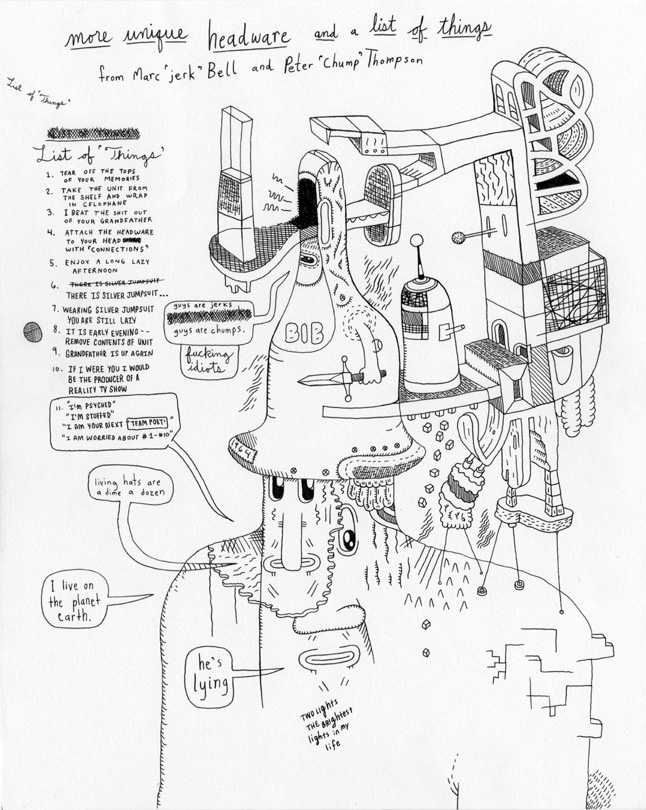 more unique headware and a list of things
from Marc "jerk" Bell and Peter "Chump" Thompson
List of "Things"
List of "Things"
1. TEAR OFF THE TOPS
OF YOUR MEMORIES
2. TAKE THE UNIT FROM
THE SHELF AND WRAP
IN CELOPHANE
3. I BEAT THE SHIT OUT
OF YOUR GRANDFATHER
4. ATTACH THE HEADWARE
TO YOUR HEAD
WITH "CONNECTIONS"
5. ENJOY A LONG LAZY
AFTERNOON
6. THERE IS SILVER JUMPSUIT
THERE IS SILVER JUMPSUIT...
7. WEARING SILVER JUMPSUIT
YOU ARE STILL LAZY
8. IT IS EARLY EVENING--
REMOVE CONTENTS OF UNIT
9. GRANDFATHER IS UP AGAIN
10. IF I WERE YOU I WOULD
BE THE PRODUCER OF A
REALITY TV SHOW
11. "I'M PSYCHED"
"I'M STUFFED"
"I AM YOUR NEXT TEAM POET"
"I AM WORRIED ABOUT #1-#10"
guys are jerks
guys are chumps.
fucking
idiots
BIB
1964
living hats are
a dime a dozen
I live on
the planet
earth.
he's
lying
TWO LIGHTS
THE BRIGHTEST
lights in my
life